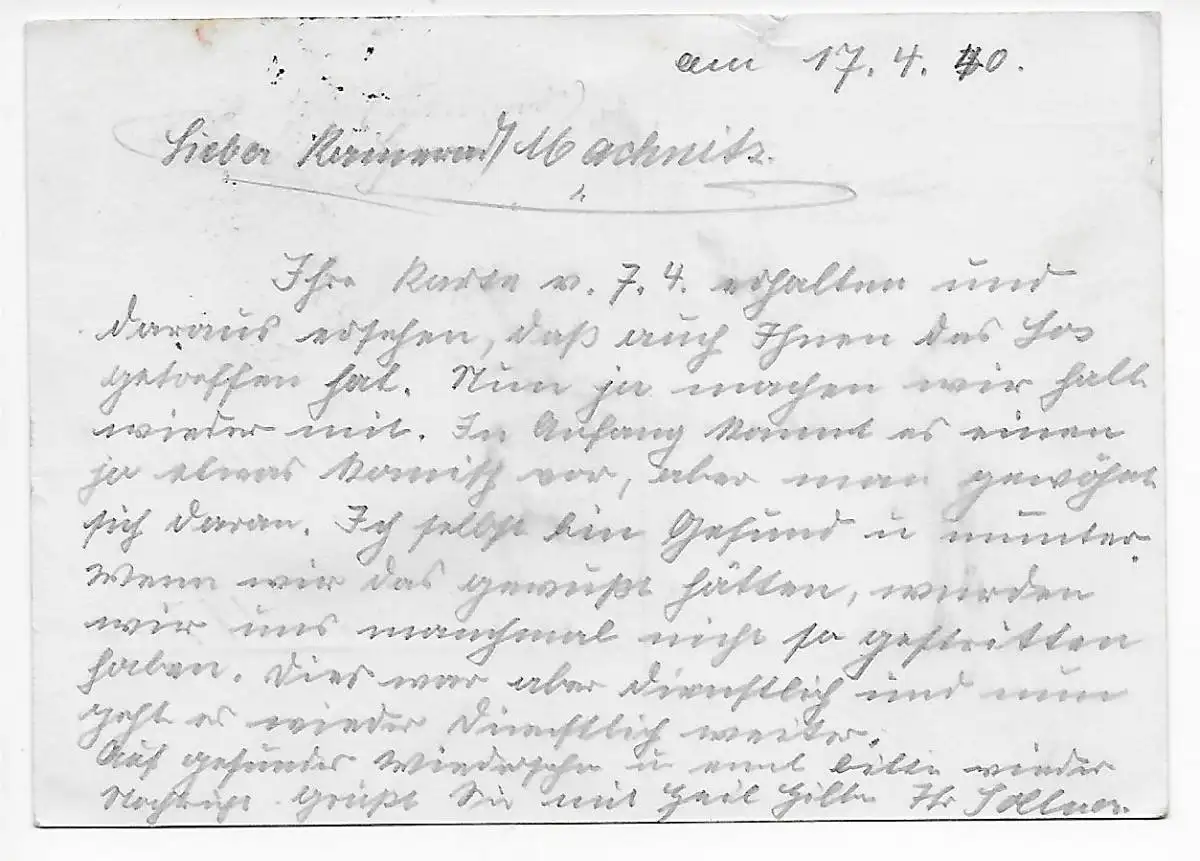 am 17. 4. 40.
Lieber Kamerad Machnitz.
Ihre Karte v. 7. 4. erhalten und
daraus ersehen, daß auch Ihnen das Los
getroffen hat. Nun ja machen wir halt
wieder mit. In Anfang kommt es einen
ja etwas komisch vor, aber man gewöhnt
sich daran. Ich selbst bin Gesund u munter.
Wenn wir das gewußt hätten, würden
wir uns manchmal nicht so gestritten
haben. Dies war aber dienstlich und nun
geht es wieder dienstlich weiter.
Auf gesundes Wiedersehn u evtl bitte wieder
Nachricht grüßt Sie mit Heil Hitler Ihr